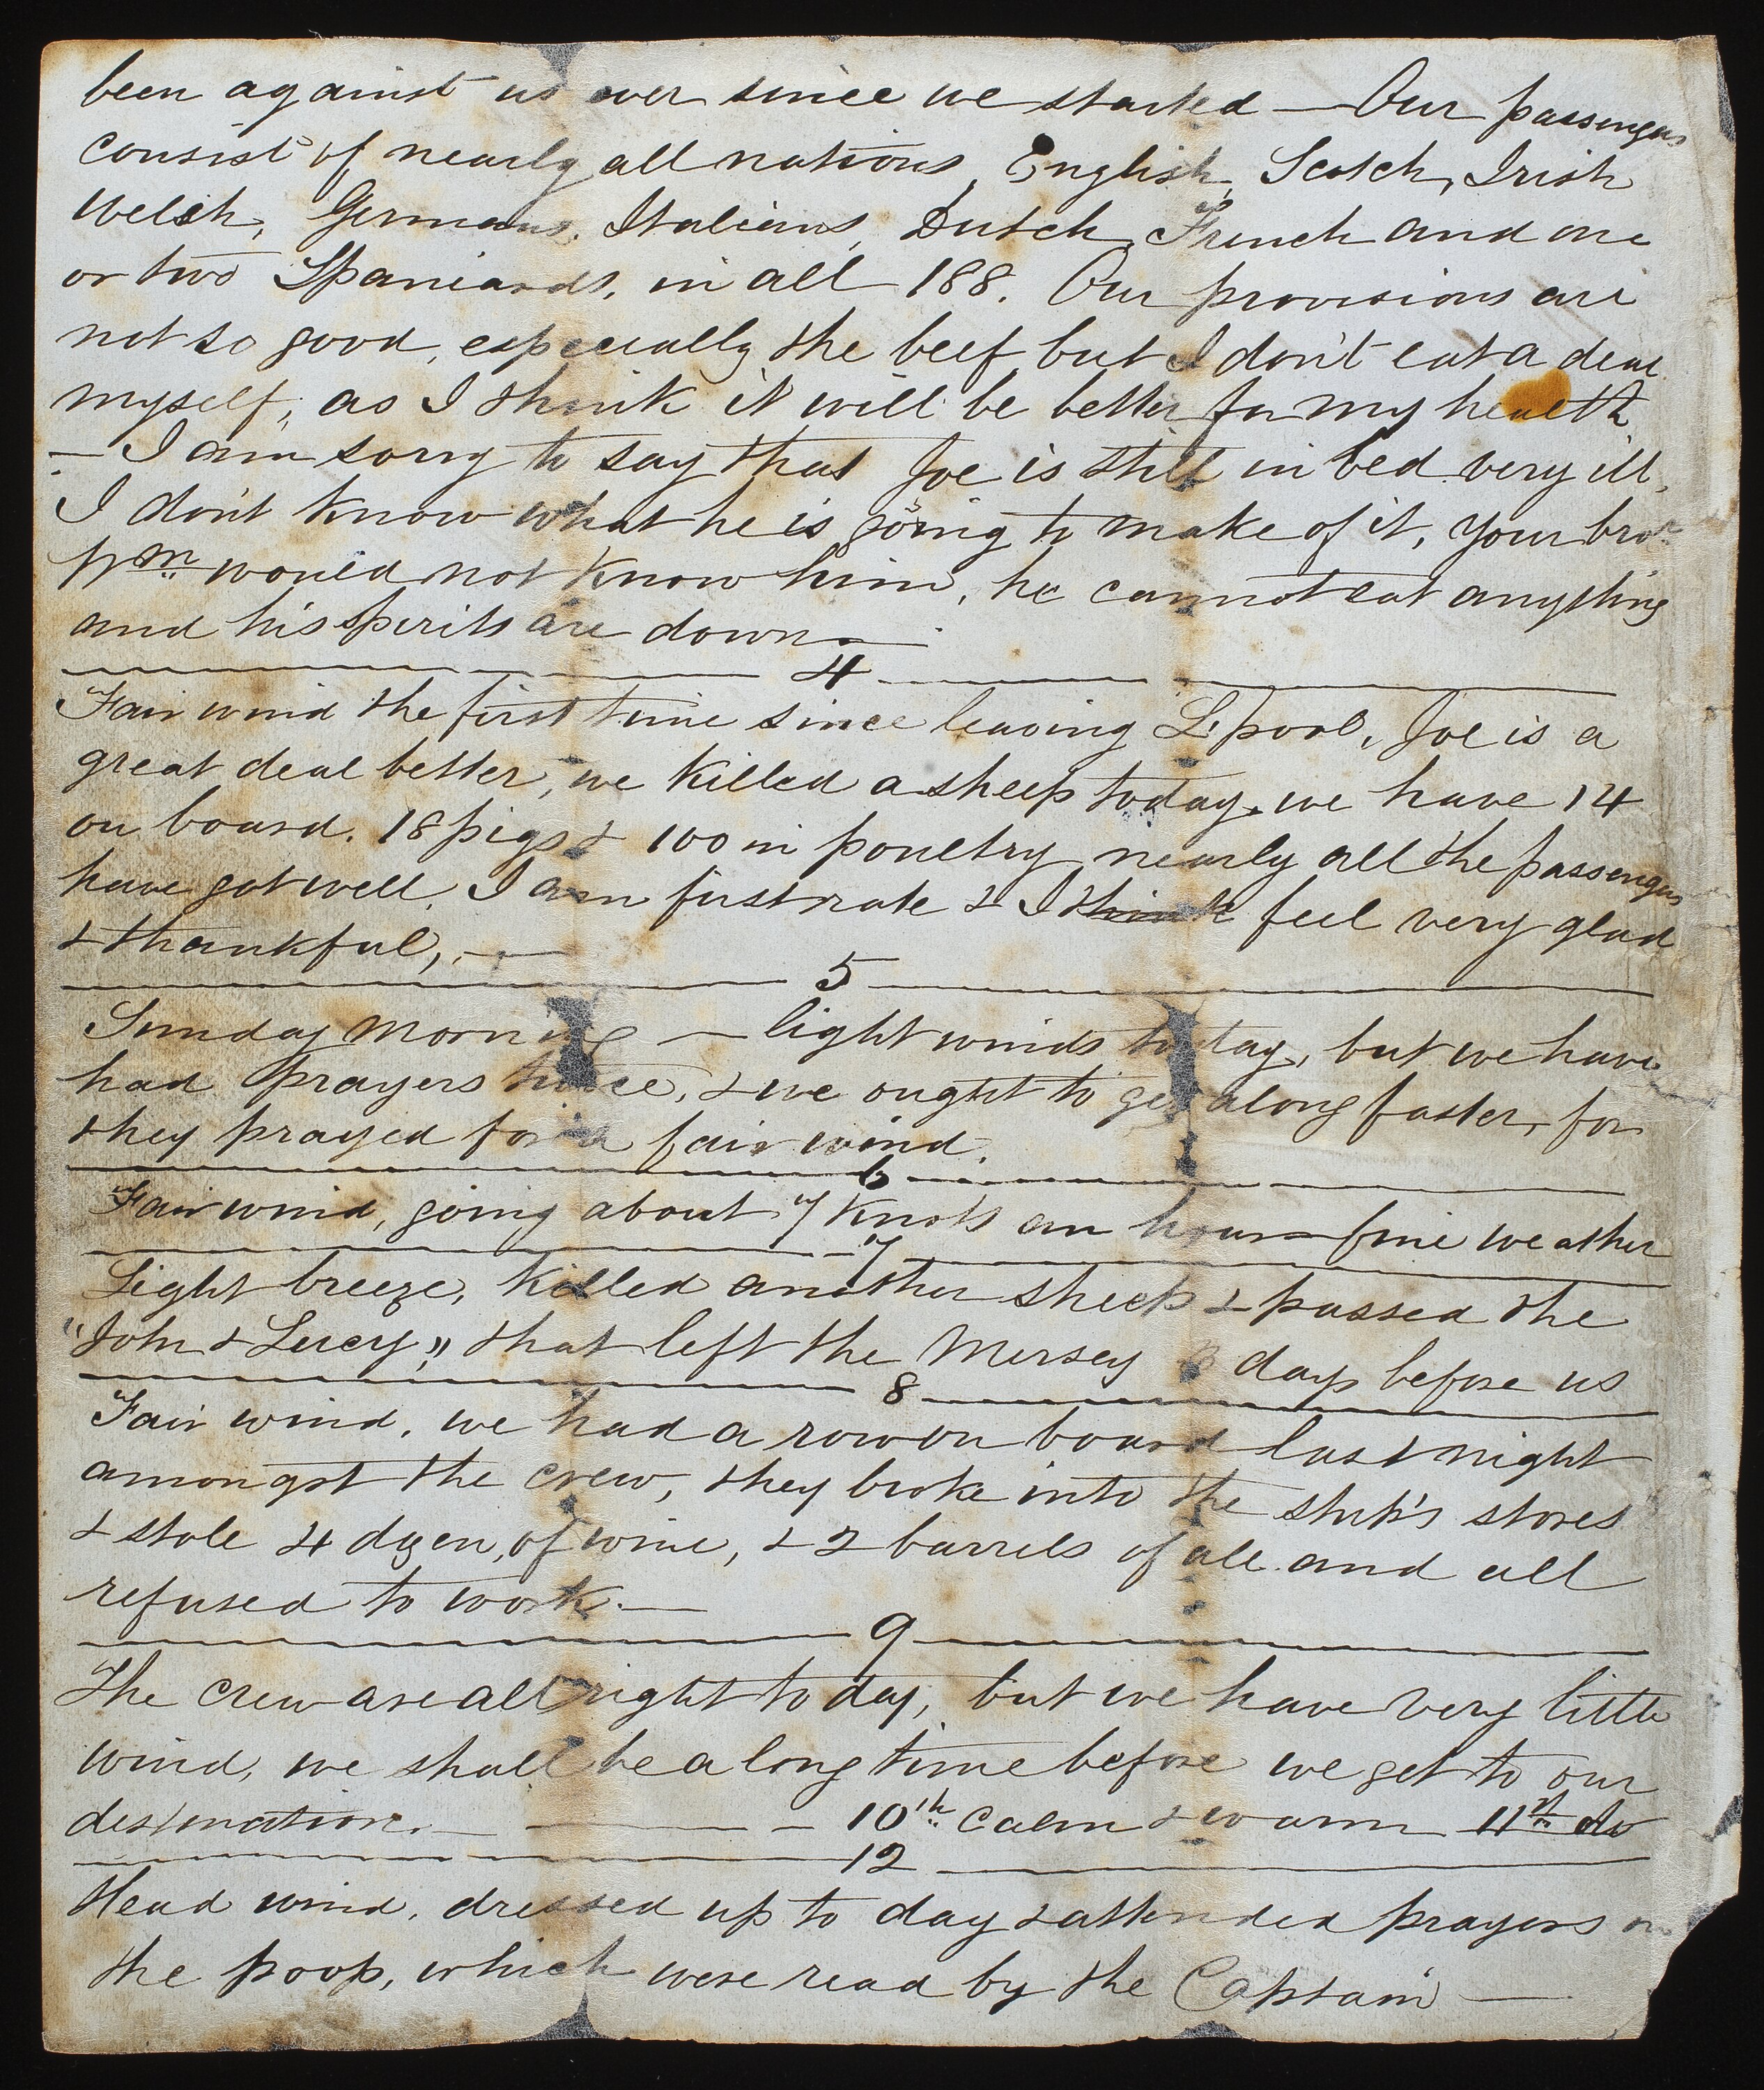 been against us ever since we started — Our passengers
consist of nearly all nations, English, Scotch, Irish
Welsh, Germans, Italians, Dutch, French and one
or two Spaniards, in all 188. Our provisions are
not so good, especially the beef but I don't eat a deal
myself, as I think it will be better for my health
— I am sorry to say that Joe is still in bed very ill,
I don't know what he is going to make of it, your bror
Wm would not know him, he cannot eat anything
and his spirits are down —
4
Fair wind the first time since leaving L'pool, Joe is a
great deal better, we killed a sheep today, we have 14
on board, 18 pigs & 100 in poultry, nearly all the passengers
have got well. I am first rate & I think feel very glad
& thankful, —
5
Sunday morning — light winds today, but we have
had prayers twice, & we ought to get along faster, for
they prayed for a fair wind.
6
Fair wind, going about 7 knots an hour — fine weather
7
Light breeze, killed another sheep & passed the
"John & Lucy", that left the Mersey days before us
8
Fair wind, we had a row on board last night
amongst the crew, they broke into the ship's stores
& stole 4 dozen, of wine, & 2 barrels of ale and all
refused to work. —
9
The crew are all right to day, but we have very little
wind, we shall be a long time before we get to our
destination. — 10th Calm & warm — 11th do
12
Head wind, dressed up to day & attended prayers on
the poop, which were read by the Captain —